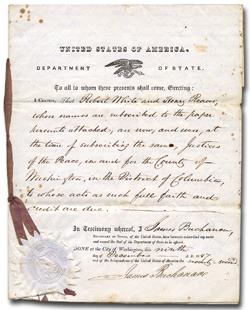 UNITED STATES OF AMERICA.
DEPARTMENT OF STATE.
To all to whom these presents shall come, Greeting:
I Certify, That Robert White and Henry
whose names are subscribed to the paper
hereunto attached, are now, and were, at
the time of subscribing the same, Justices
of the Peace, in and for the County of
Washington, in the District of Columbia,
to whose acts as such full faith and
credit are due.
In Testimony whereof, I James Buchanan,
Secretary of State, of the United States, have hereunto subscribed my name
and caused the Seal of the Department of State to be affixed.
DONE at the City of Washington, this ninth
day of December A.D. 1847
and of the Independence of the United States of America the seventy-second.
James Buchanan